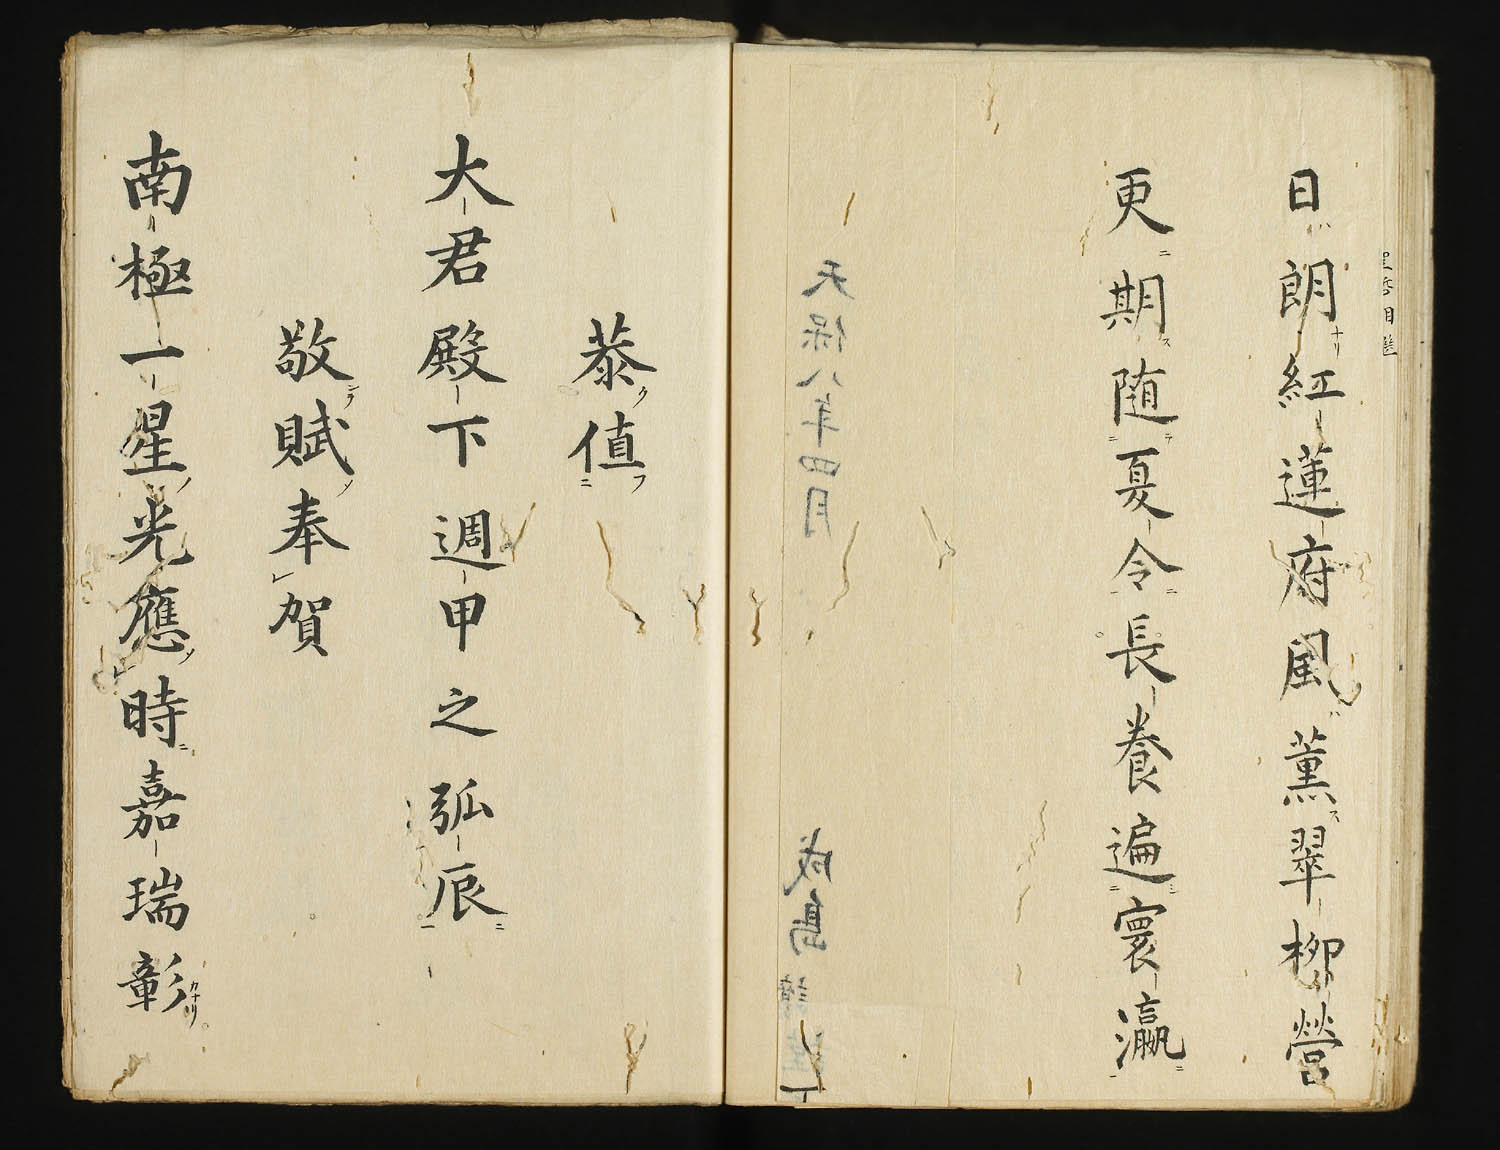 日朗紅蓮府風薫翠柳営
更期随夏令長養遍寰瀛
天保八年四月
成島
恭値
大君殿下週甲之弧辰
敬賦奉賀
南極一星光應時嘉瑞彰